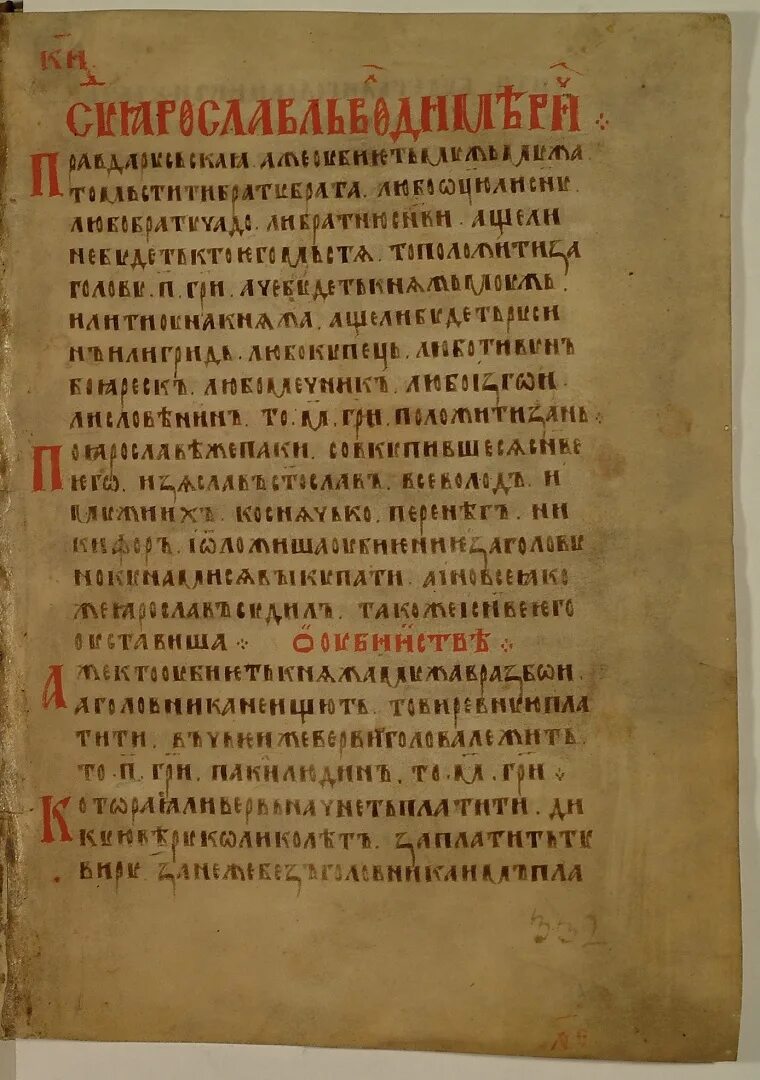 к҃и
СѸДЪ ꙖРОСЛАВЛЬ ВОЛОДИМѢРИЧѦ
Правда русьскаꙗ. аже оубиеть мужь мужа
то мьстити брату брата. любо ѡц҃ю ли сн҃у
любо братучадо. ли братню сн҃ви. аще ли
не будеть кто его мьстѧ. то положити за
голову .п҃. грн҃. аче будеть кнѧжь моужь
или тиоуна кнѧжа. аще ли будеть руси
нъ или гридь. любо купець. любо тивунъ
боꙗрескъ. любо мечникъ. любо изгои
ли словѣнинъ. то .м҃. грн҃. положити за нь
По ꙗрославѣ же паки. совкупившесѧ сн҃ве
его. изѧславъ ст҃ославъ. всеволодъ. и
мужи ихъ. коснѧчько. перенѣгъ. ни
кифоръ. и ѿложиша оубиение за голову
но кунами сѧ выкупати. а ино все ꙗко
же ꙗрославъ судилъ. такоже и сн҃ве его
оуставиша
О оубиистве
Аже кто оубиеть кнѧжа мужа в разбои.
а головника не ищють. то виревную пла
тити. въ чьеи же верви голова лежить
то .п҃. грн҃. паки людинъ. то .м҃. грн҃
Котораꙗ ли вервь начнеть платити. ди
кую вѣру колико лѣтъ. заплатить ту
виру. зане же безъ головника имъ пла
332